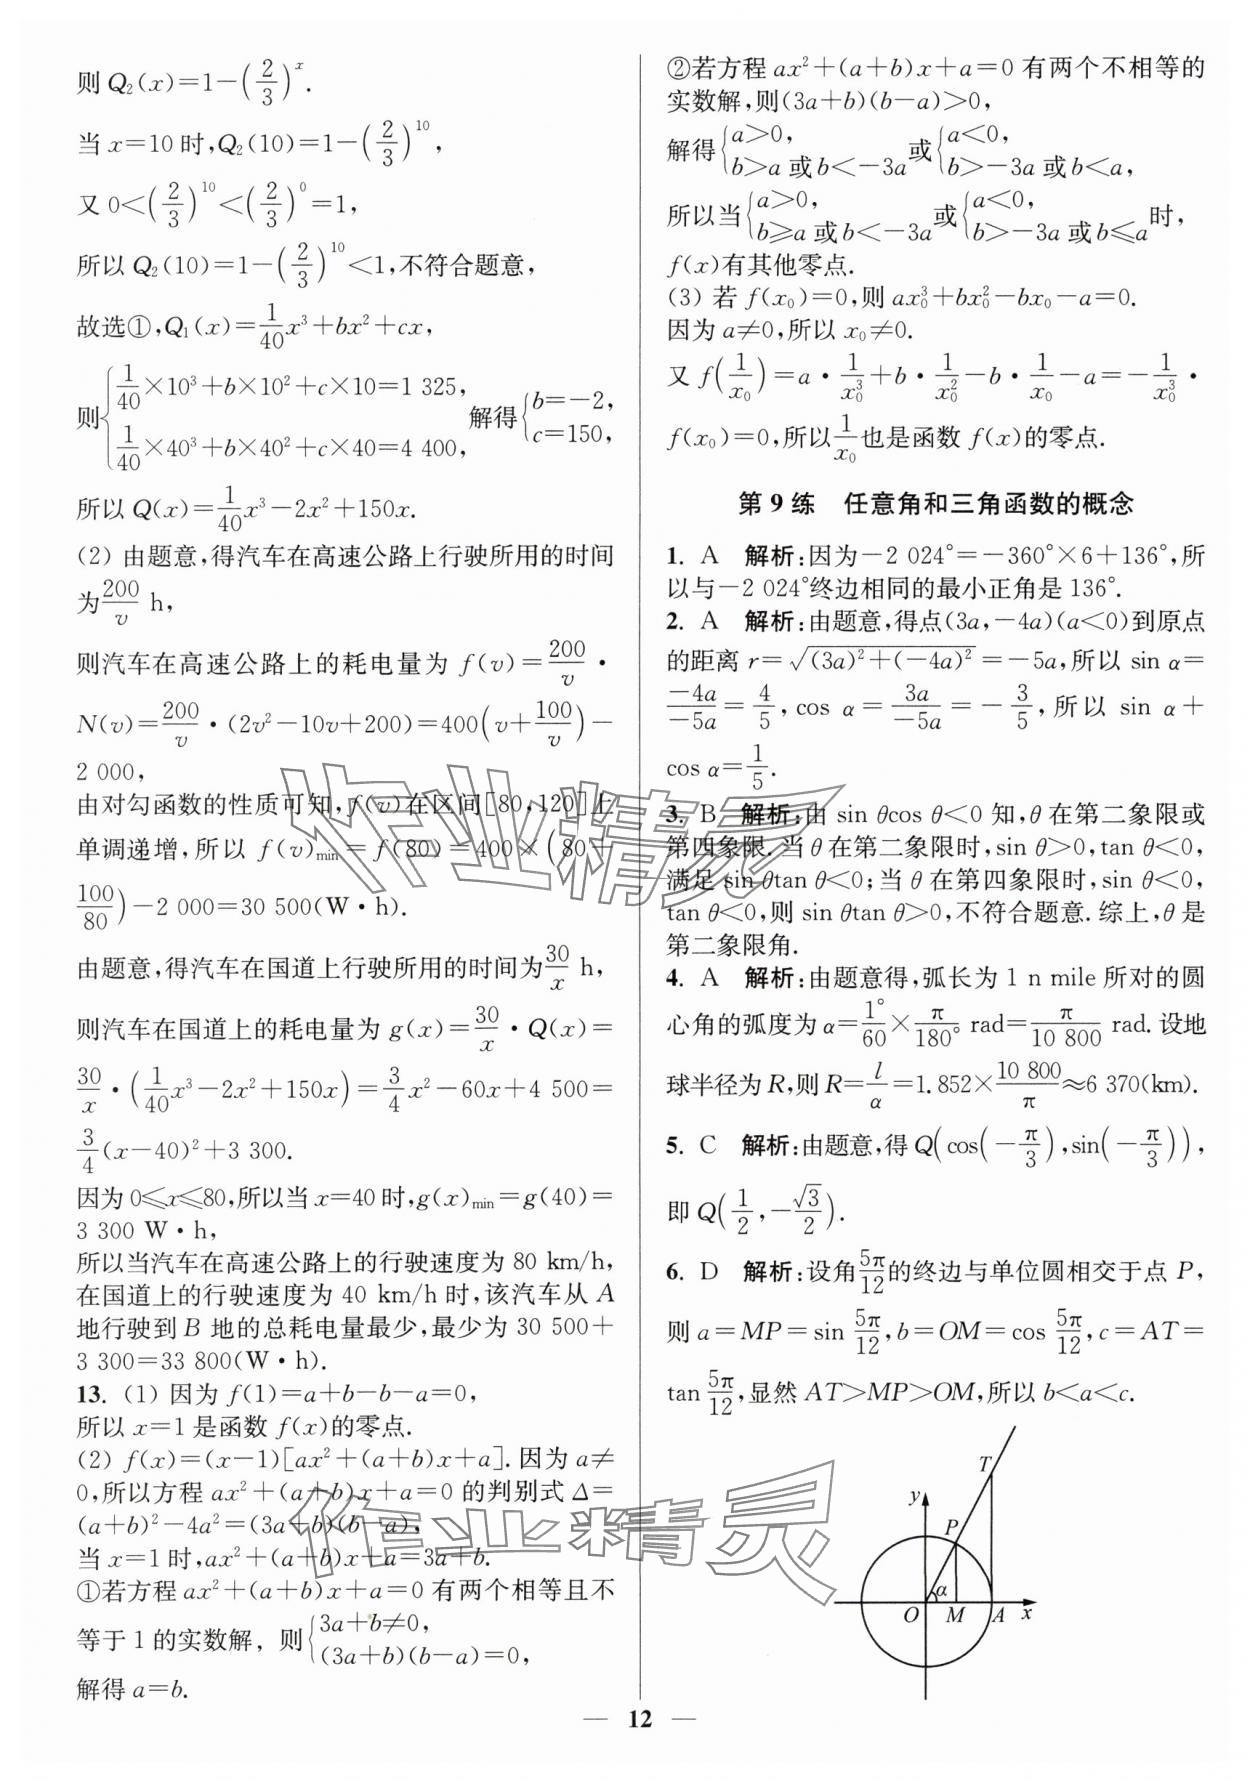 则 Q₂(x)=1-(2/3)^x.
当 x=10 时,Q₂(10)=1-(2/3)^10,
又 0<(2/3)^10<(2/3)^0=1,
所以 Q₂(10)=1-(2/3)^10<1,不符合题意,
故选①,Q₁(x)=1/40 x³+bx²+cx,
则{1/40×10³+b×10²+c×10=1 325, 1/40×40³+b×40²+c×40=4 400, 解得{b=-2, c=150,
所以 Q(x)=1/40 x³-2x²+150x.
(2) 由题意,得汽车在高速公路上行驶所用的时间
为200/v h,
则汽车在高速公路上的耗电量为 f(v)=200/v ·
N(v)=200/v·(2v²-10v+200)=400(v+100/v)-
2 000,
由对勾函数的性质可知,f(v)在区间[80,120]上
单调递增,所以 f(v)min=f(80)=400×(80+
100/80)-2 000=30 500(W·h).
由题意,得汽车在国道上行驶所用的时间为30/x h,
则汽车在国道上的耗电量为 g(x)=30/x·Q(x)=
30/x·(1/40 x³-2x²+150x)=3/4 x²-60x+4 500=
3/4(x-40)²+3 300.
因为 0≤x≤80,所以当 x=40 时,g(x)min=g(40)=
3 300 W·h,
所以当汽车在高速公路上的行驶速度为 80 km/h,
在国道上的行驶速度为 40 km/h 时,该汽车从 A
地行驶到 B 地的总耗电量最少,最少为 30 500+
3 300=33 800(W·h).
13. (1) 因为 f(1)=a+b-b-a=0,
所以 x=1 是函数 f(x)的零点.
(2) f(x)=(x-1)[ax²+(a+b)x+a].因为 a≠
0,所以方程 ax²+(a+b)x+a=0 的判别式 Δ=
(a+b)²-4a²=(3a+b)(b-a),
当 x=1 时,ax²+(a+b)x+a=3a+b.
①若方程 ax²+(a+b)x+a=0 有两个相等且不
等于 1 的实数解, 则{3a+b≠0, (3a+b)(b-a)=0,
解得 a=b.
②若方程 ax²+(a+b)x+a=0 有两个不相等的
实数解,则(3a+b)(b-a)>0,
解得{a>0, b>a 或 b<-3a 或{a<0, b>-3a 或 b<a,
所以当{a>0, b≥a 或 b<-3a 或{a<0, b>-3a 或 b≤a 时,
f(x)有其他零点.
(3) 若 f(x₀)=0,则 ax₀³+bx₀²-bx₀-a=0.
因为 a≠0,所以 x₀≠0.
又 f(1/x₀)=a·1/x₀³+b·1/x₀²-b·1/x₀-a=-1/x₀³·
f(x₀)=0,所以1/x₀也是函数 f(x)的零点.
第 9 练 任意角和三角函数的概念
1. A 解析:因为-2 024°=-360°×6+136°,所
以与-2 024°终边相同的最小正角是 136°.
2. A 解析:由题意,得点(3a,-4a)(a<0)到原点
的距离 r=√((3a)²+(-4a)²)=-5a,所以 sin α=
-4a/-5a=4/5, cos α=3a/-5a=-3/5,所以 sin α+
cos α=1/5.
3. B 解析:由 sin θcos θ<0 知,θ 在第二象限或
第四象限.当 θ 在第二象限时,sin θ>0,tan θ<0,
满足 sin θtan θ<0;当 θ 在第四象限时,sin θ<0,
tan θ<0,则 sin θtan θ>0,不符合题意.综上,θ 是
第二象限角.
4. A 解析:由题意得,弧长为 1 n mile 所对的圆
心角的弧度为 α=1°/60×π/180° rad=π/10 800 rad.设地
球半径为 R,则 R=l/α=1.852×10 800/π≈6 370(km).
5. C 解析:由题意,得 Q(cos(-π/3),sin(-π/3)),
即 Q(1/2,-√3/2).
6. D 解析:设角5π/12的终边与单位圆相交于点 P,
则 a=MP=sin 5π/12,b=OM=cos 5π/12,c=AT=
tan 5π/12,显然 AT>MP>OM,所以 b<a<c.
T
y
P
α
O M A x
— 12 —
作业精灵
作业精灵